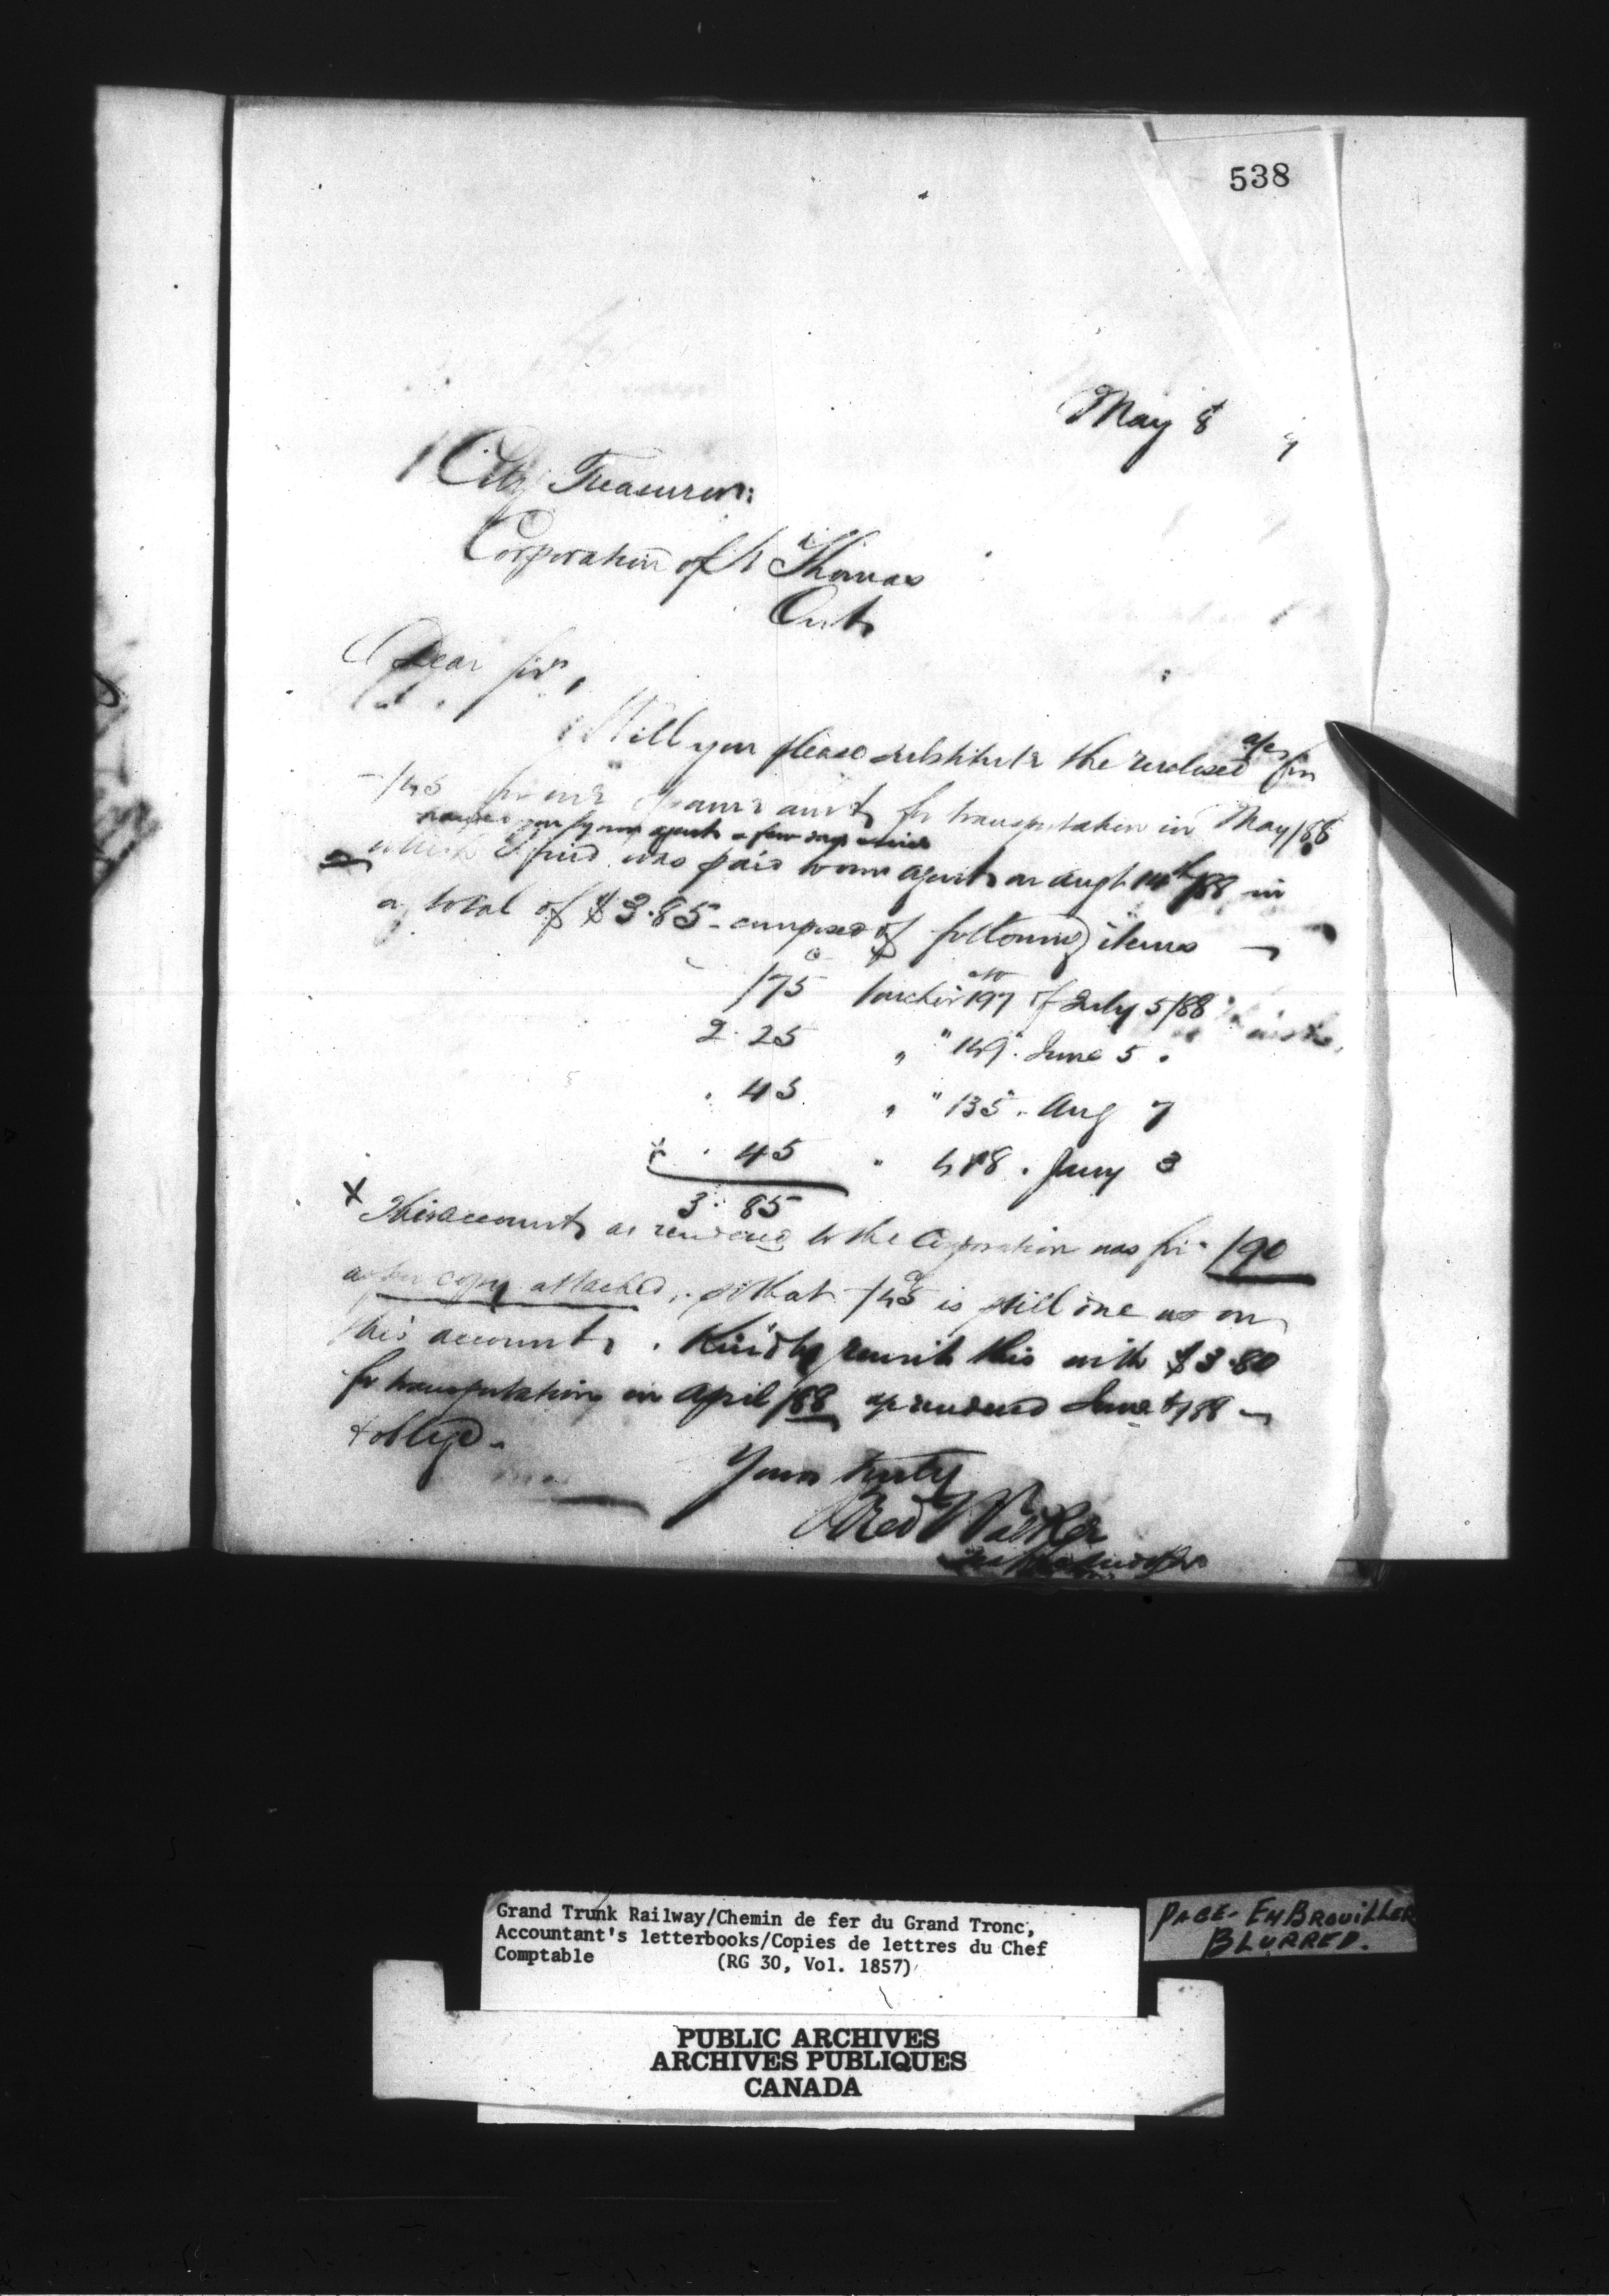 538
May 8 9
City Treasurer:
Corporation of St Thomas
Ont
Dear Sir,
Will you please substitute the enclosed a/c for
-/45 for one same amt for transportation in May/88
you by our agent a few days since
which I find was paid to our agent on Augt 14th/88 in
a total of $3.85 - composed of following items
/75 Voucher No 197 of July 5/88
2.25 " " 149. June 5 .
. 45 " " 135. Aug 7
x . 45 " 418. Jany 3
3. 85
x This account as rendered to the Corporation was for /90
as per copy attached, so that /45 is still due us on
this account. Kindly remit this with $3.80
for transportation in April/88 as rendered June /88
& oblige.
Yours truly
Walker
Grand Trunk Railway/Chemin de fer du Grand Tronc,
Accountant's letterbooks/Copies de lettres du Chef
Comptable (RG 30, Vol. 1857)
PAGE-EMBROUILLER
BLURRED.
PUBLIC ARCHIVES
ARCHIVES PUBLIQUES
CANADA